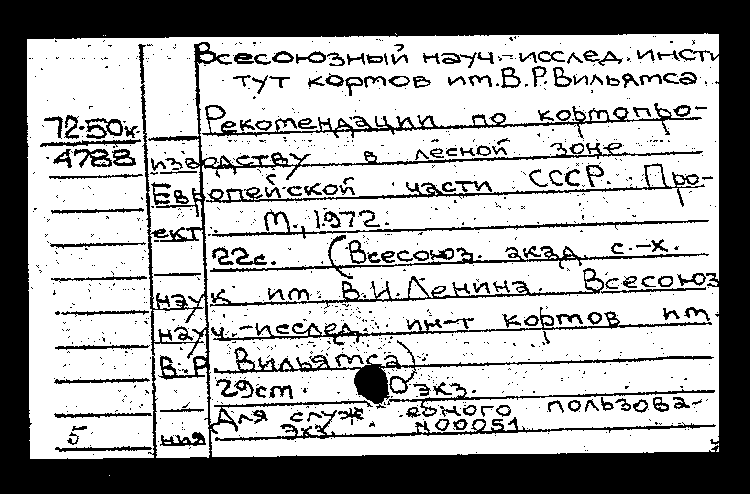 Всесоюзный науч.-исслед. инсти
тут кормов им. В.Р. Вильямса
72-50к Рекомендации по кормопро-
4788 изводству в лесной зоне
Европейской части СССР. Про-
ект. М., 1972.
22с. (Всесоюз. акад. с.-х.
наук им. В.И. Ленина. Всесоюз
науч.-исслед. ин-т кормов им.
В.Р. Вильямса)
29см. 0 экз.
Для служебного пользова-
5 ния Экз. N00051